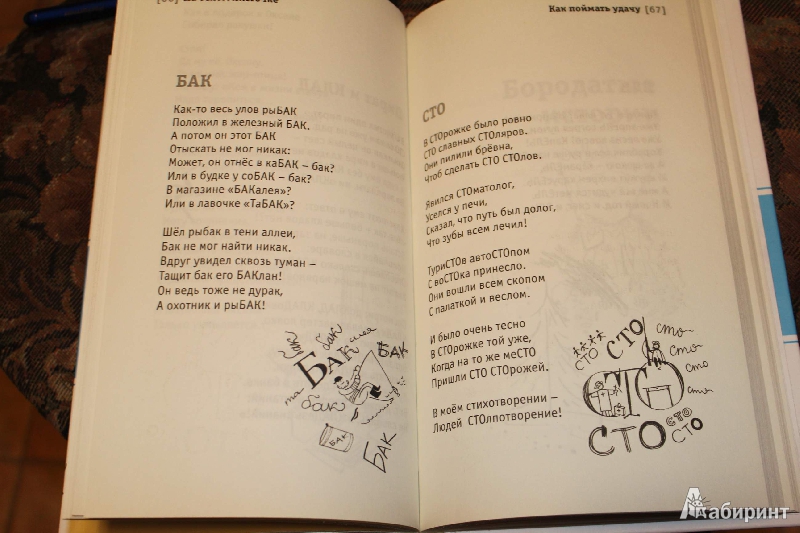 Как поймать удачу [67]
БАК
Как-то весь улов рыБАК
Положил в железный БАК.
А потом он этот БАК
Отыскать не мог никак:
Может, он отнёс в каБАК – бак?
Или в будку у соБАК – бак?
В магазине «БАКалея»?
Или в лавочке «ТаБАК»?
Шёл рыбак в тени аллеи,
Бак не мог найти никак.
Вдруг увидел сквозь туман –
Тащит бак его БАКлан!
Он ведь тоже не дурак,
А охотник и рыБАК!
бак
БАК
БАК
бак
БАК
БАК
СТО
В СТОрожке было ровно
СТО славных СТОляров.
Они пилили брёвна,
Чтоб сделать СТО СТОлов.
Явился СТОматолог,
Уселся у печи,
Сказал, что путь был долог,
Что зубы всем лечил!
ТуриСТОв автоСТОпом
С воСТОка принесло.
Они вошли всем скопом
С палаткой и веслом.
И было очень тесно
В СТОрожке той уже,
Когда на то же меСТО
Пришли СТО СТОрожей.
В моём стихотворении –
Людей СТОлпотворение!
СТО
СТО
сто
сто
сто
сто
СТО
СТО
СТО
СТО
Лабиринт